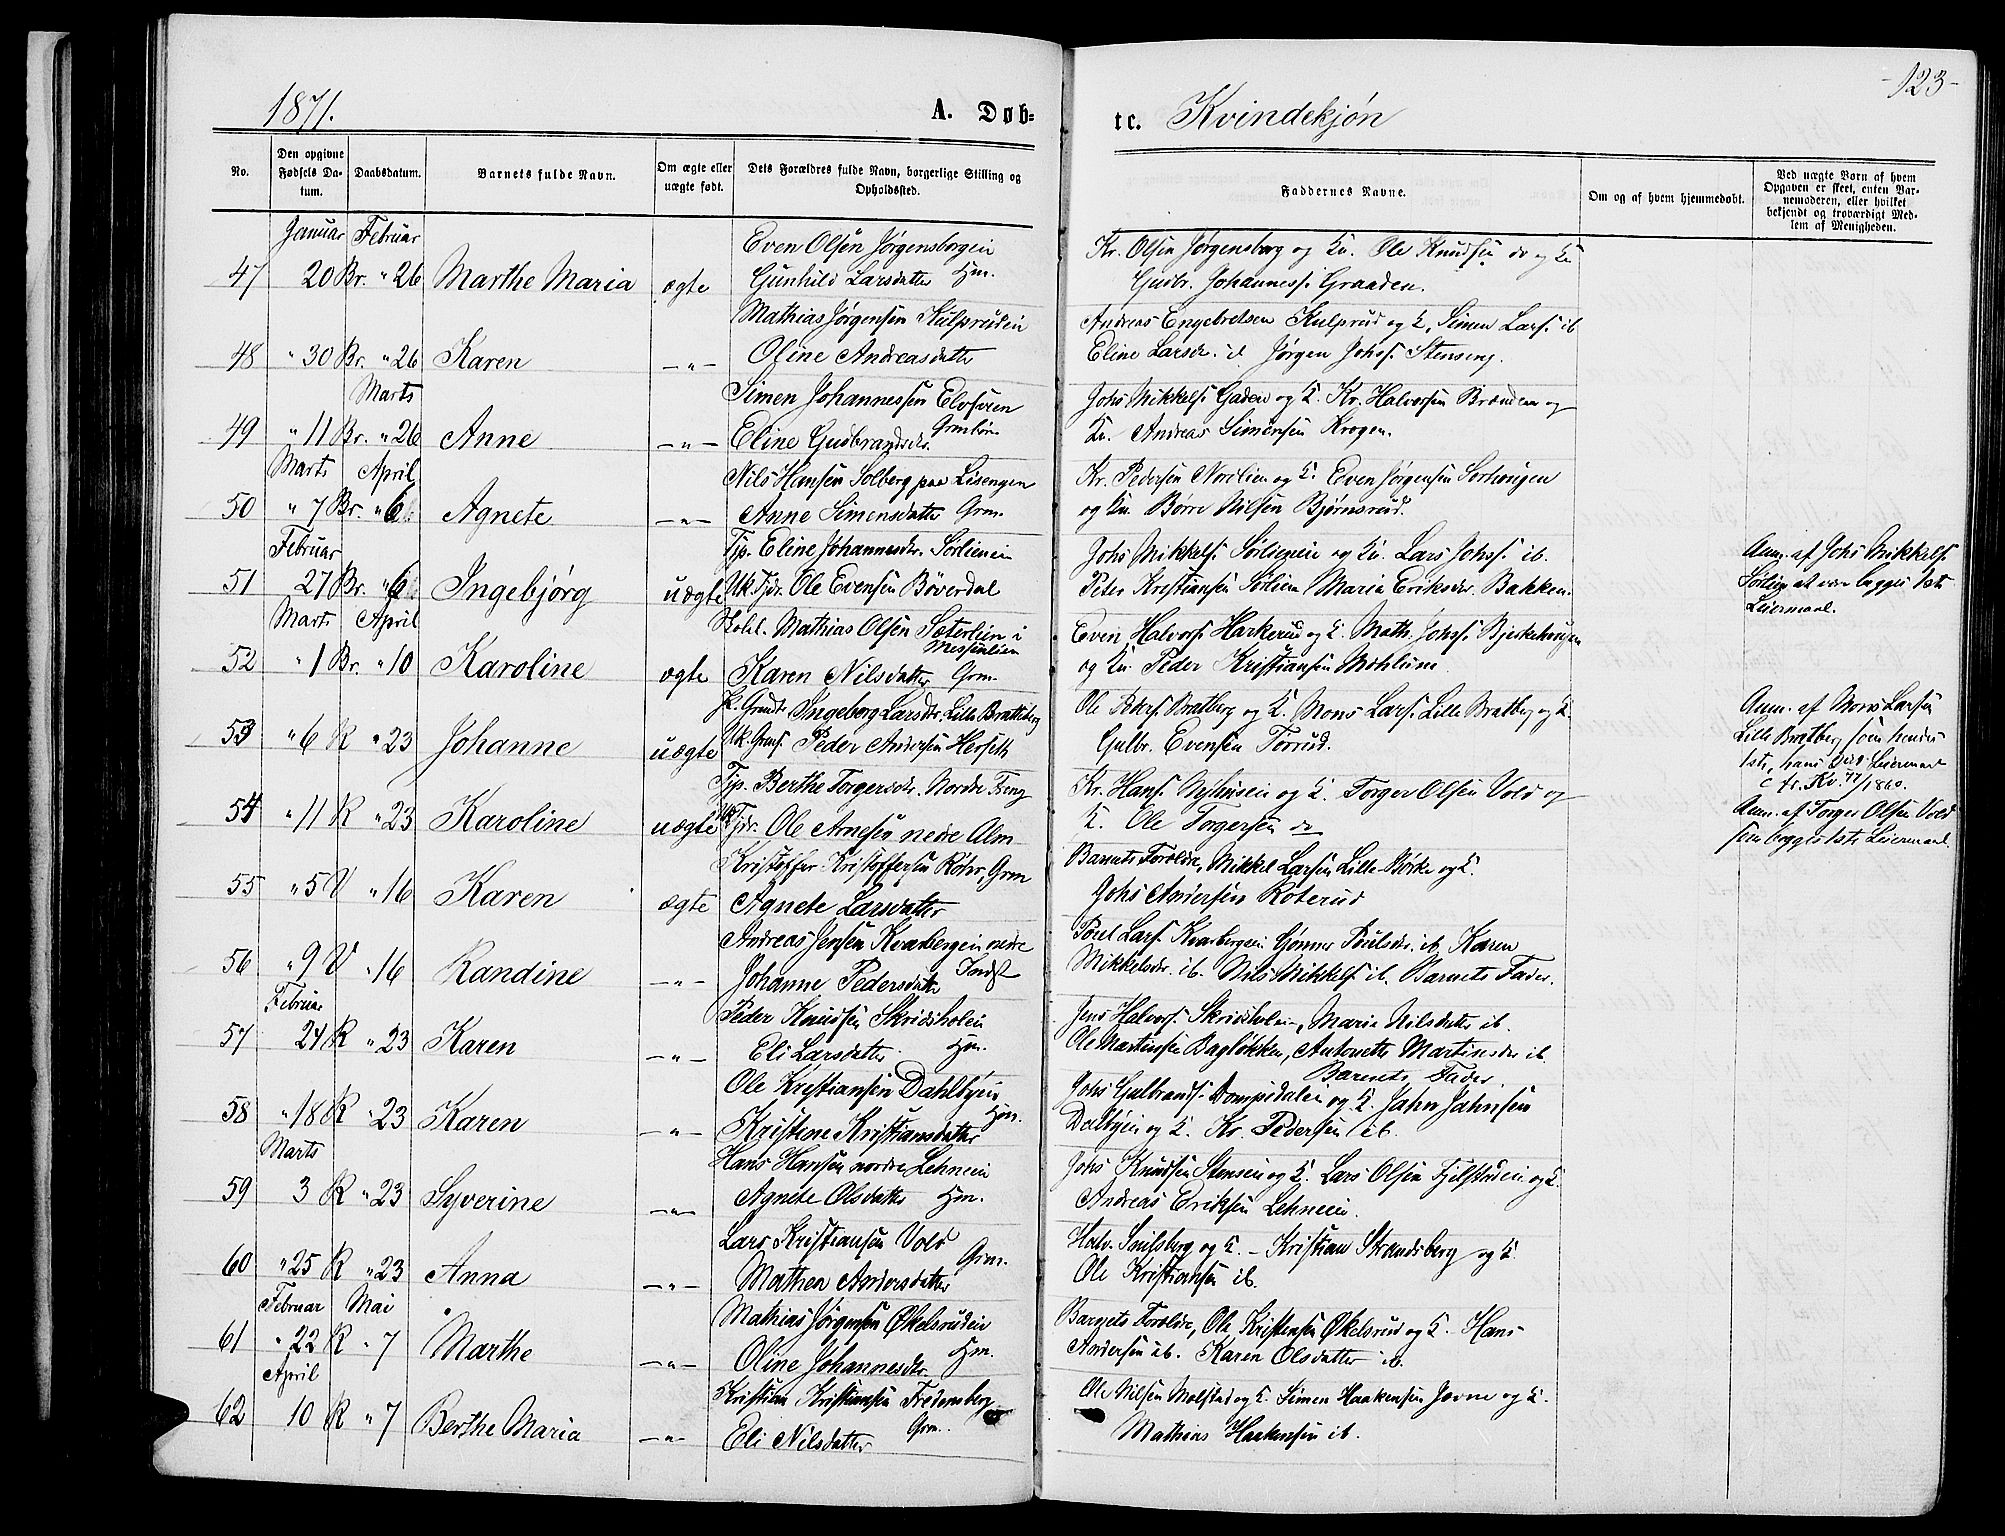 1871.
A. Døb-
te. Kvindekjøn
-123-
No.
Den opgivne Fødsels Datum.
Daabsdatum.
Barnets fulde Navn.
Om ægte eller uægte født.
Dets Forældres fulde Navn, borgerlige Stilling og Opholdssted.
Faddernes Navne.
Om og af hvem hjemmedøbt.
Ved uægte Børn af hvem Opgaven er skeet, enten Barnemoderen, eller hvilket bekjendt og troværdigt Medlem af Menigheden.
Januar Februar
Even Olsen Jørgensborgein
Kr. Olsen Jørgensborg og Ku. Ole Knudsen do og Ku
47 20 Br. " 26 Marthe Maria ægte Gunhild Larsdatter Hm.
Gudbr. Johanness. Graaden.
Mathias Jørgensen Kulpruden
Andreas Engebretsen Kulprud og K, Simen Lars. ib
48 " 30 Br. " 26 Karen -"- Oline Andreasdatter
Eline Larsdr. Jørgen Johs. Stenseng.
Marts
Simen Johannessen
Johs Mikkels. Gaden og K. Kr. Halvorsen Brænden og
49 " 11 Br. " 26 Anne -"- Eline Gudbrandsdr.
Ku. Andreas Simensen Krogen.
Marts April
Nils Hansen Solberg paa Lisengen
Kr. Pedersen Nordlien og K. Even Jørgensen
50 " 7 Br. " 6 Agnete -"- Anne Simensdatter Grm.
og Ku. Børre Nilsen Bjørnsrud.
Februar
Tjp. Eline Johannesdr. Sørlien
Johs Mikkels. Sørlien og Ku. Lars Johs. ib.
Anm. af Johs Mikkels.
51 27 Br. " 6 Ingebjørg uægte Uk. Tjdr. Ole Evensen Bøverdal
Peter Kristiansen Sørlien Maria Eriksdr. Bakken.
Sørlien at være begges 1ste
Leiermaal.
Marts April
Mathias Olsen Sæterlien i
Messenlien
Even Halvors. Harkerud og K. Math. Johs. Bjerkehaugen
52 " 1 Br. " 10 Karoline ægte Karen Nilsdatter Grm.
og Ku. Peder Kristiansen Mæhlum.
Ingeborg Larsdr. Lille Bratberg
Ole Peters. Bratberg og K. Mons Lars. Lille Bratberg og K.
Anm. af Mons Larsen
53 " 6 K " 23 Johanne uægte Uk. Peder Andersen Herseth
Gulbr. Evensen Tørrud.
Lille Bratberg som hendes
1ste, hans Leiermaal
1860.
Tjp. Berthe Torgersdr. Nordre
Kr. Hans. Nyhusen og K. Torger Olsen Vold og
Anm. af Torger Olsen Vold
54 " 11 K " 23 Karoline uægte Uk. Tjdr. Ole Arnesen nedre Alm
K. Ole Torgersen do
som begges 1ste Leiermaal
Kristoffer Kristoffersen Røhr, Grm
Barnets Forældre, Mikkel Larsen Lille Børke og K.
55 " 5 V " 16 Karen ægte Agnete Larsdatter
Johs Andersen Roterud
Andreas Jensen Kvarbergein nedre
Poul Lars. Kvarbergein Gønner Poulsdr. ib. Karen
56 " 9 V " 16 Randine -"- Johanne Pedersdatter Indst
Mikkelsdr. ib. Nils Mikkels. ib. Barnets Fader.
Februar
Peder Knudsen Skridsholein
Jens Halvors. Skridsholen, Marie Nilsdatter ib.
57 24 K " 23 Karen -"- Eli Larsdatter Hm.
Ole Martinsen Bagløkken, Antonette Martinsdr ib.
Barnets Fader.
Ole Kristiansen Dahlbyein
Johs Gulbrands. Dompidalen og K. Jahn Jahnsen
58 " 18 K " 23 Karen -"- Kristine Kristiansdatter Hm.
Dalbyein og K. Kr. Pedersen ib.
Marts
Hans Hansen nordre Lehnein
Johs Knudsen Stensein og K. Lars Olsen Fjelstadein og K.
59 3 K " 23 Syverine -"- Agnete Olsdatter Hm.
Andreas Eriksen Lehnein.
Lars Kristiansen Vold
Halv. Snilsberg og K. - Kristian Strandsberg og K.
60 " 25 K " 23 Anna -"- Mathea Andersdatter Grm.
Ole Kristiansen ib.
Februar Mai
Mathias Jørgensen Økelsruden
Barnets Forældre, Ole Kristensen Økelsrud og K. Hans
61 " 22 K " 7 Marthe -"- Oline Johannesdr. Hm.
Andersen ib. Karen Olsdatter ib.
April
Kristian Kristiansen Fredensberg
Ole Nilsen Molstad og K. Simen Haakensen Jevne og K.
62 10 K " 7 Berthe Maria -"- Eli Nilsdatter Grm.
Mathias Haakensen ib.